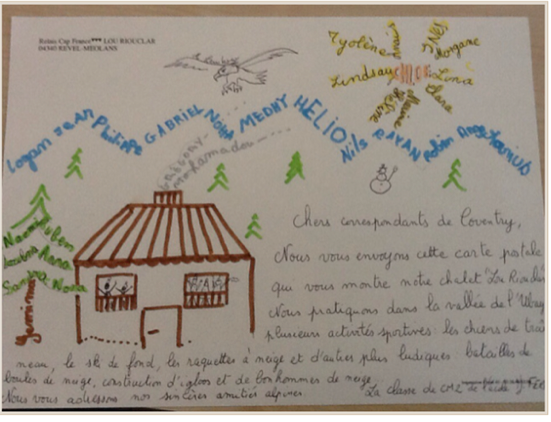 Relais Cap France*** LOU RIOUCLAR
04340 REVEL-MEOLANS
Logan JEAN Philippe GABRIEL Noha MEDHY HELIO Nils RAYAN Robin Ange Darius
Tyolène
Morgane
Lindsay
Lina
Clara
Mohamadou
Chers correspondants de Coventry,
Nous vous envoyons cette carte postale
qui vous montre notre chalet Lou Riouclar
Nous pratiquons dans la vallée de l'Ubaye
plusieurs activités sportives : les chiens de traî
neau, le ski de fond, les raquettes à neige et d'autres plus ludiques : batailles de
boules de neige, construction d'igloos et de bonhommes de neige.
Nous vous adressons nos sincères amitiés alpines.
La classe de CM2 de